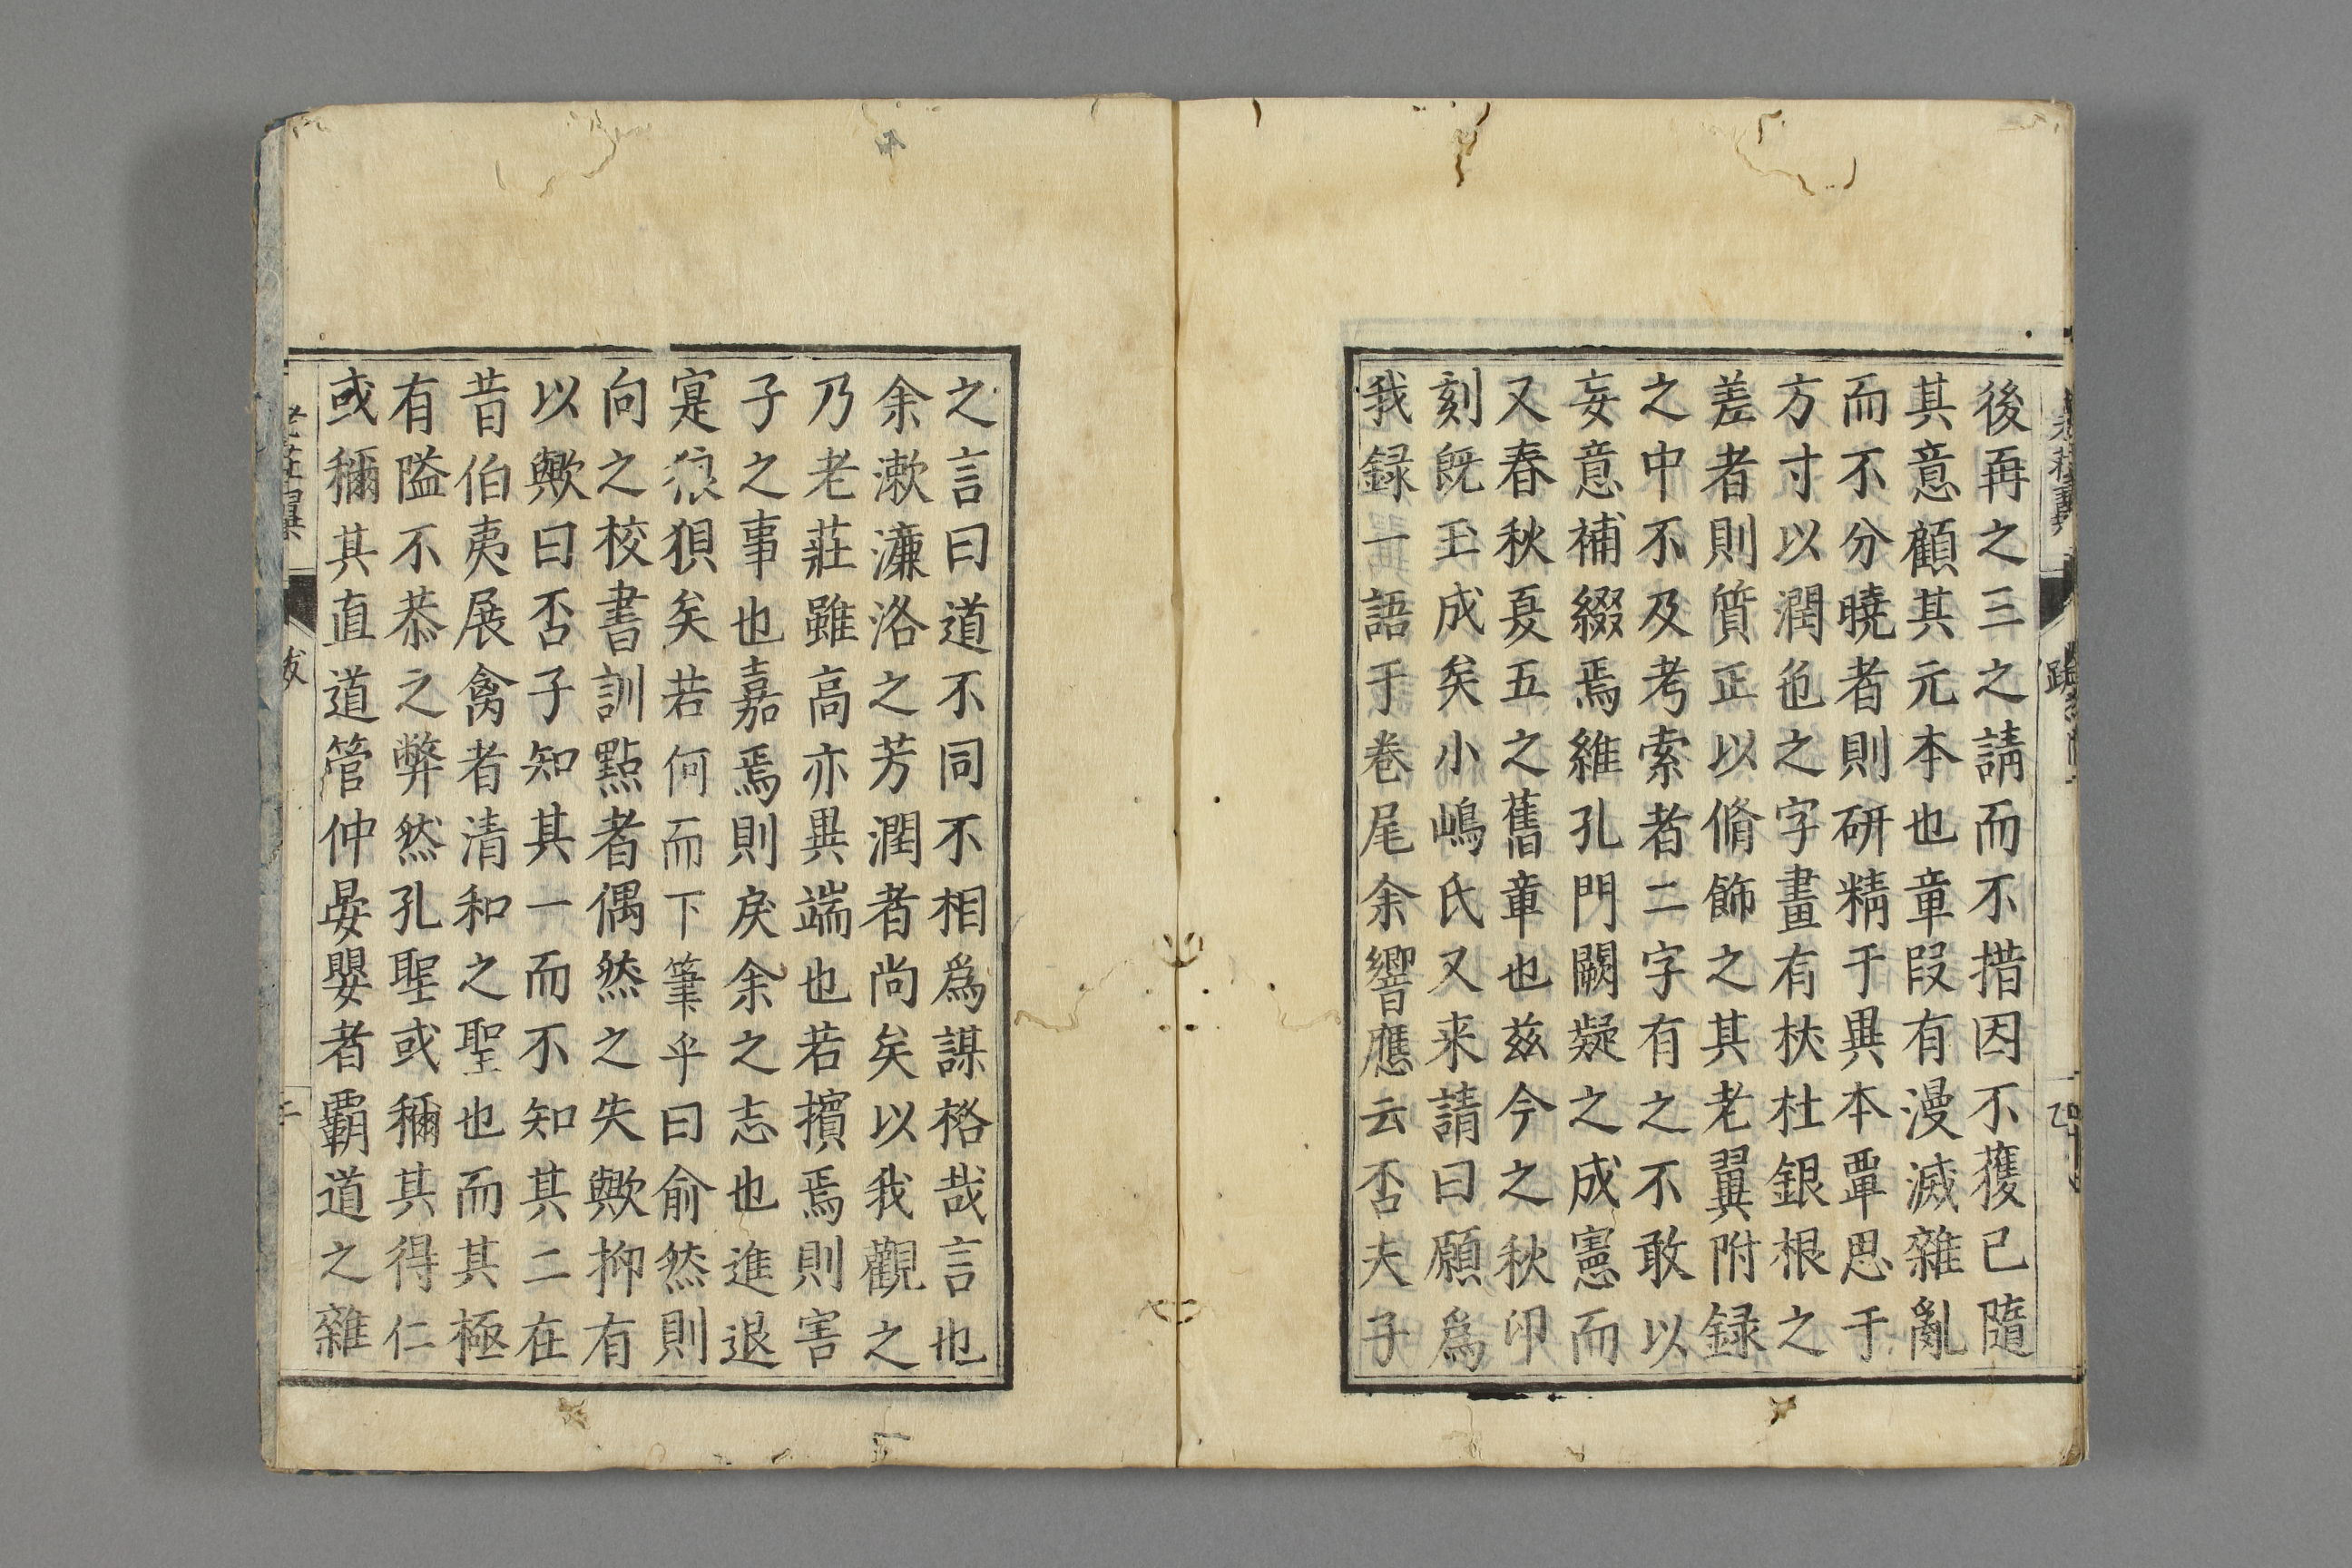 後再之三之請而不措因不獲已隨
其意顧其元本也章段有漫滅雜亂
而不分曉者則研精于異本覃思于
方寸以潤色之字畫有杕杜銀根之
差者則質正以脩飾之其老翼附録
之中不及考索者二字有之不敢以
妄意補綴焉維孔門闕疑之成憲而
又春秋夏五之舊章也茲今之秋印
刻既玉成矣小嶋氏又来請曰願爲
我録一語于卷尾余響應云否夫子
之言曰道不同不相爲謀格哉言也
余漱濂洛之芳潤者尚矣以我觀之
乃老莊雖高亦異端也若擯焉則害
子之事也嘉焉則戾余之志也進退
寔狼狽矣若何而下筆乎曰俞然則
向之校書訓點者偶然之失歟抑有
以歟曰否子知其一而不知其二在
昔伯夷展禽者清和之聖也而其極
有隘不恭之弊然孔聖或稱其得仁
或稱其直道管仲晏嬰者覇道之雜